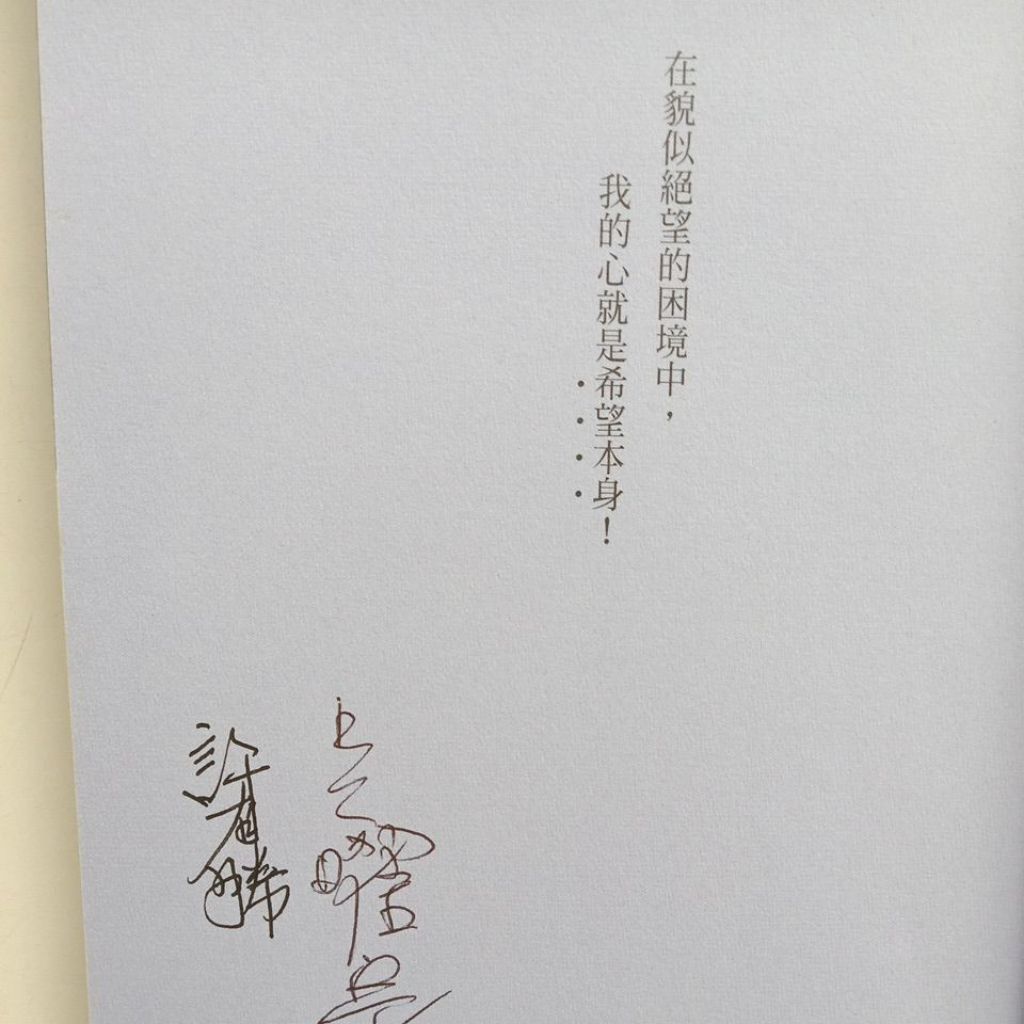 在貌似絕望的困境中，
我的心就是希望本身！
許有勝